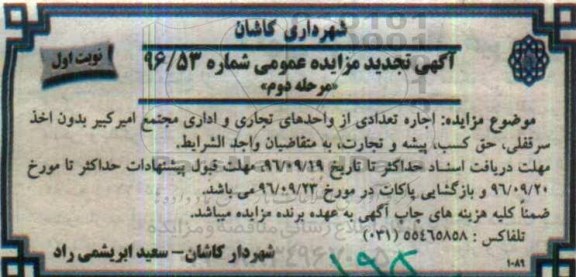 شهرداری کاشان
نوبت اول
آگهی تجدید مزایده عمومی شماره ۹۶/۵۳
«مرحله دوم»
موضوع مزایده: اجاره تعدادی از واحدهای تجاری و اداری مجتمع امیرکبیر بدون اخذ
سرقفلی، حق کسب، پیشه و تجارت، به متقاضیان واجد الشرایط.
مهلت دریافت اسناد حداکثر تا تاریخ ۹۶/۰۹/۱۹، مهلت قبول پیشنهادات حداکثر تا مورخ
۹۶/۰۹/۲۰ و بازگشایی پاکات در مورخ ۹۶/۰۹/۲۳ می باشد.
ضمناً کلیه هزینه های چاپ آگهی به عهده برنده مزایده میباشد.
تلفاکس : ۵۵۴۶۵۸۵۸ (۰۳۱)
شهردار کاشان– سعید ابریشمی راد
۱۰۸۹